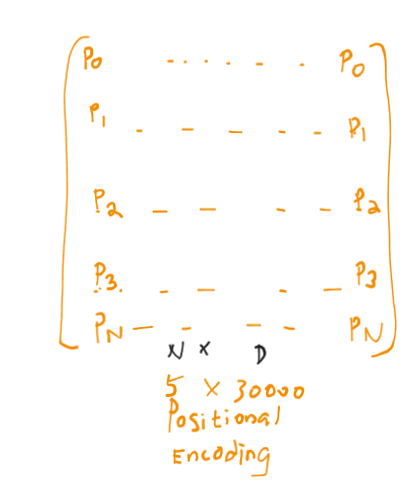 P0 . . . . . . P0
P1 - - - - - P1
P2 - - - - P2
P3 . - - - - P3
PN - - - - PN
N x D
5 x 30000
Positional
Encoding